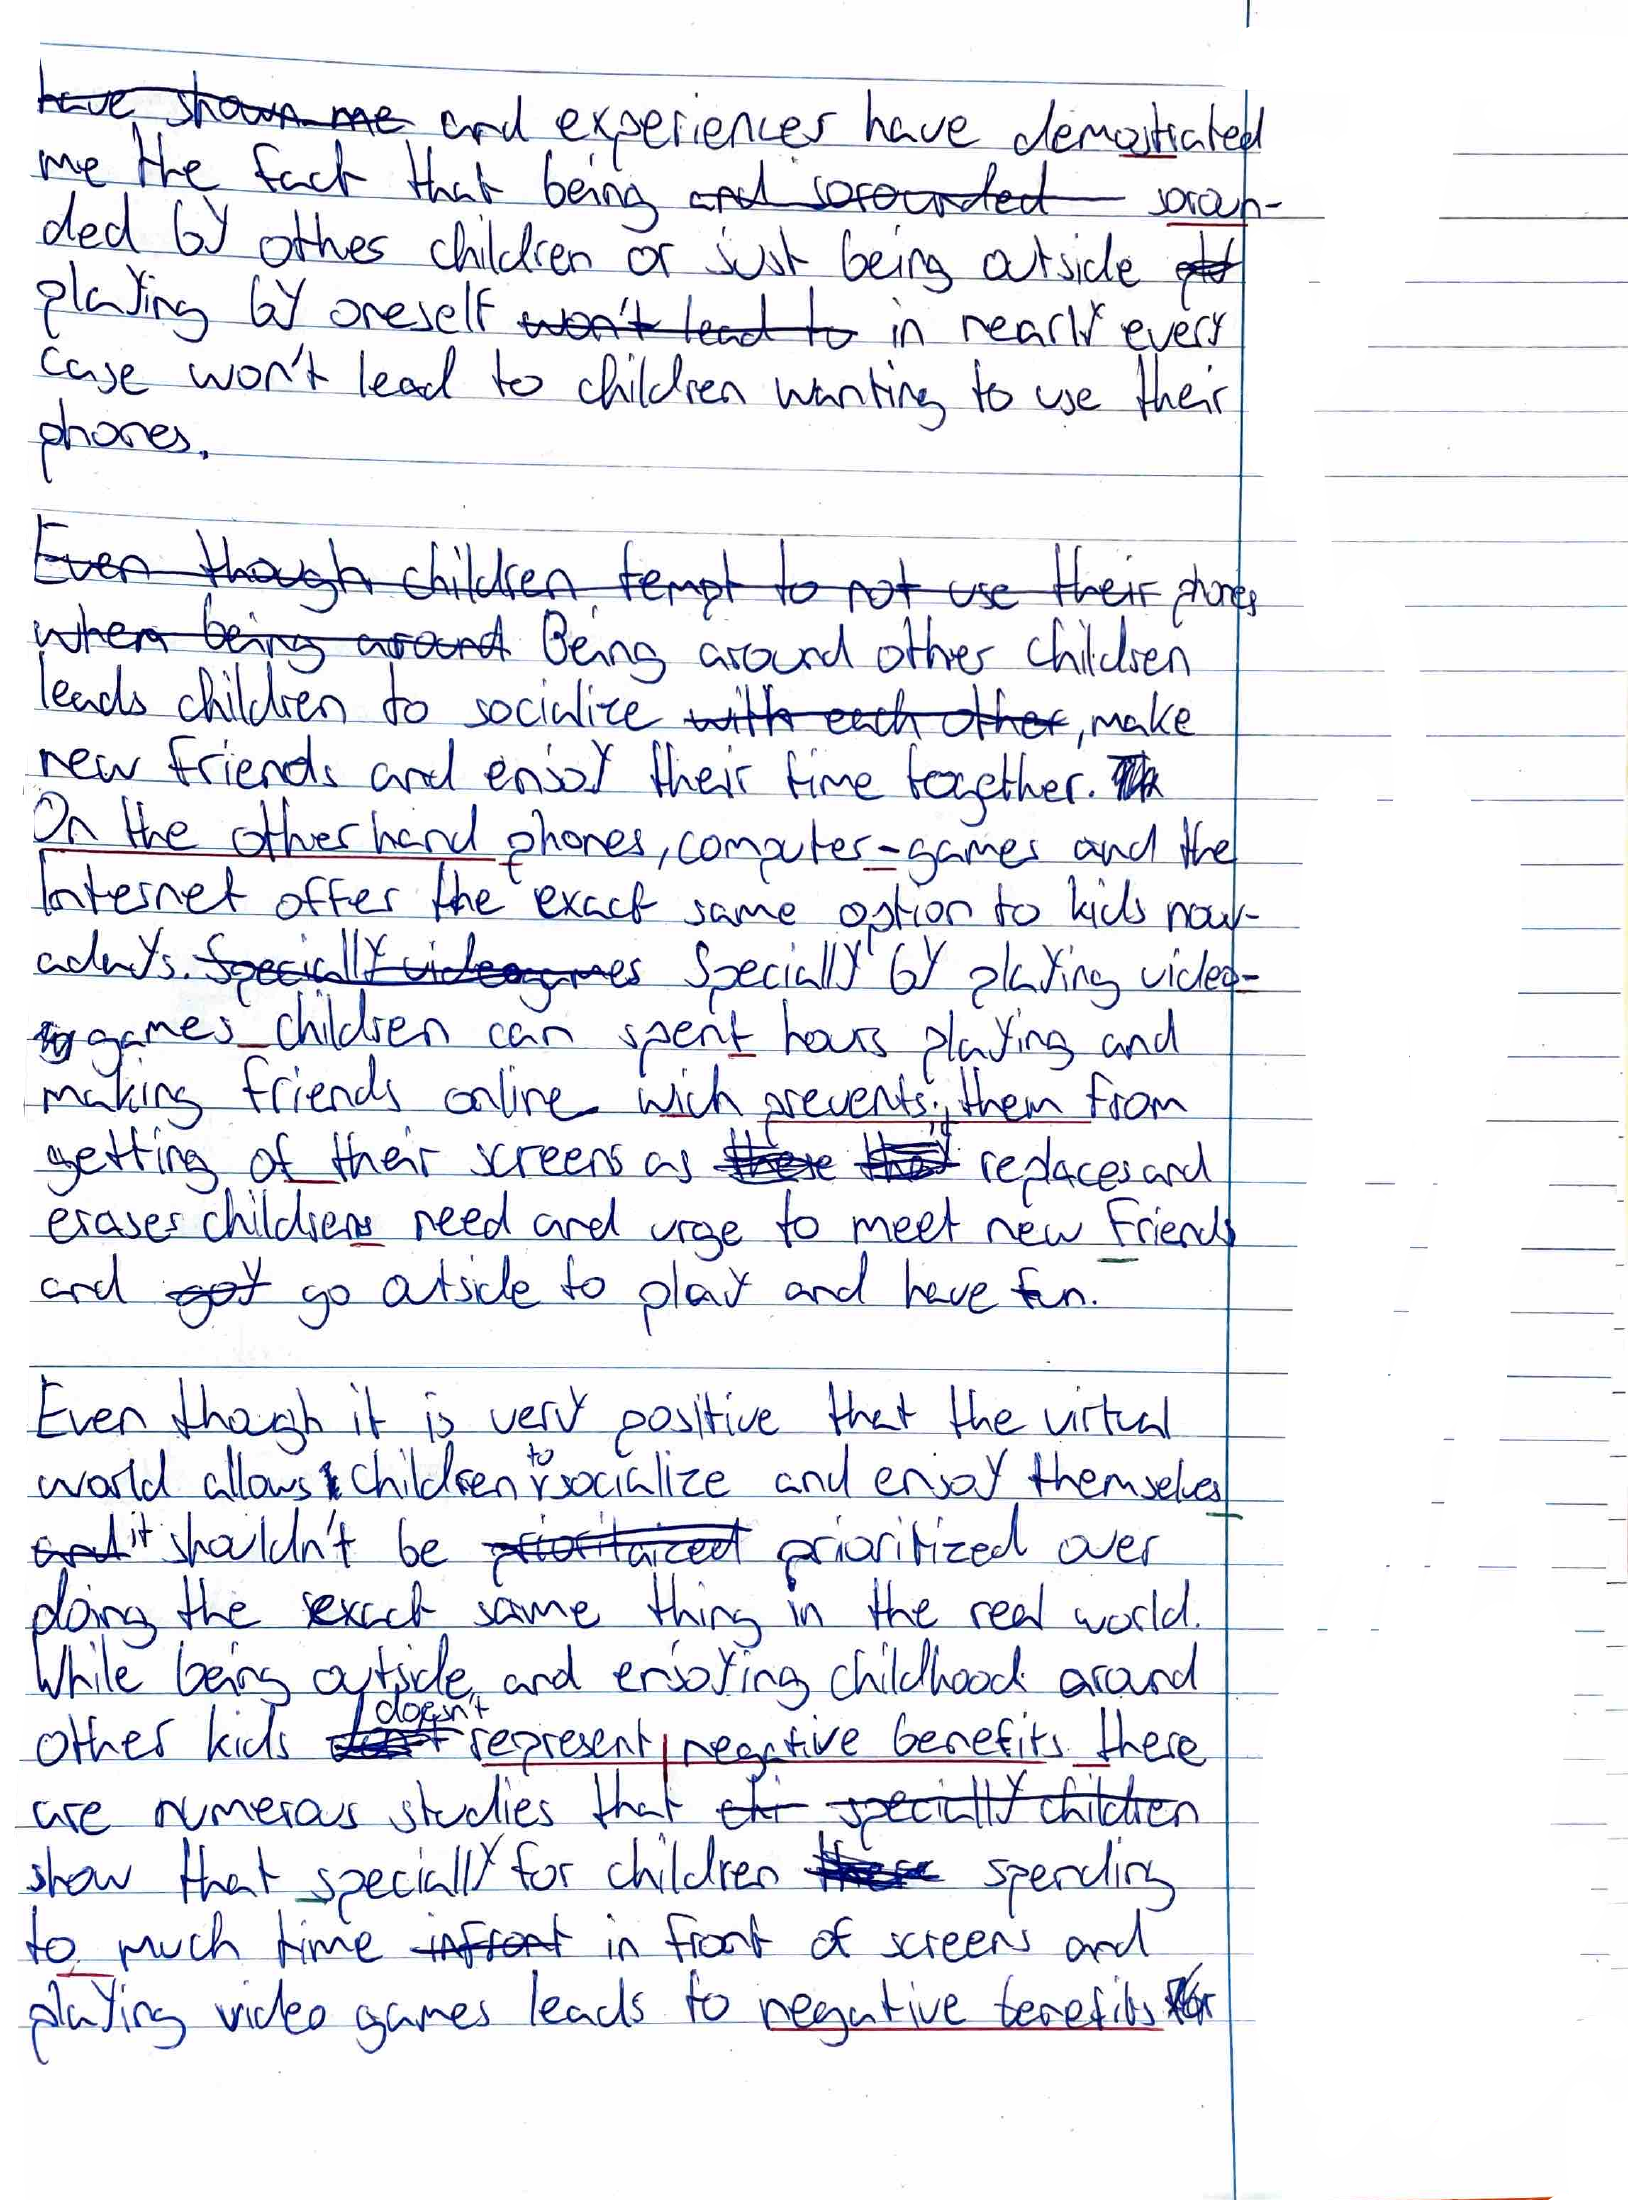 ~~have shown me~~ and experiences have demostrated
me the fact that being ~~and sorounded~~ soroun-
ded by other children or just being outside
playing by oneself ~~won't lead to~~ in nearly every
case won't lead to children wanting to use their
phones.
~~Even though children tempt to not use their phones~~
~~when being around~~ Being around other children
leads children to socialize ~~with each other~~, make
new friends and enjoy their time together.
On the other hand phones, computer-games and the
Internet offer the exact same option to kids now-
adays. ~~Specially videogames~~ Specially by playing video-
games children can spent hours playing and
making friends online wich prevents them from
getting of their screens as ~~these~~ ~~that~~ it replaces and
erases childrens need and urge to meet new friends
and ~~goy~~ go outside to play and have fun.
Even though it is very positive that the virtual
world allows children to socialize and enjoy themselves
~~and~~ it shouldn't be ~~prioritaized~~ prioritized over
doing the exact same thing in the real world.
While being outside, and enjoying childhood around
other kids doesn't represent negative benefits there
are numerous studies that ~~chi~~ ~~specially children~~
show that specially for children ~~these~~ spending
to much time ~~infront~~ in front of screens and
playing video games leads to negative benefits for